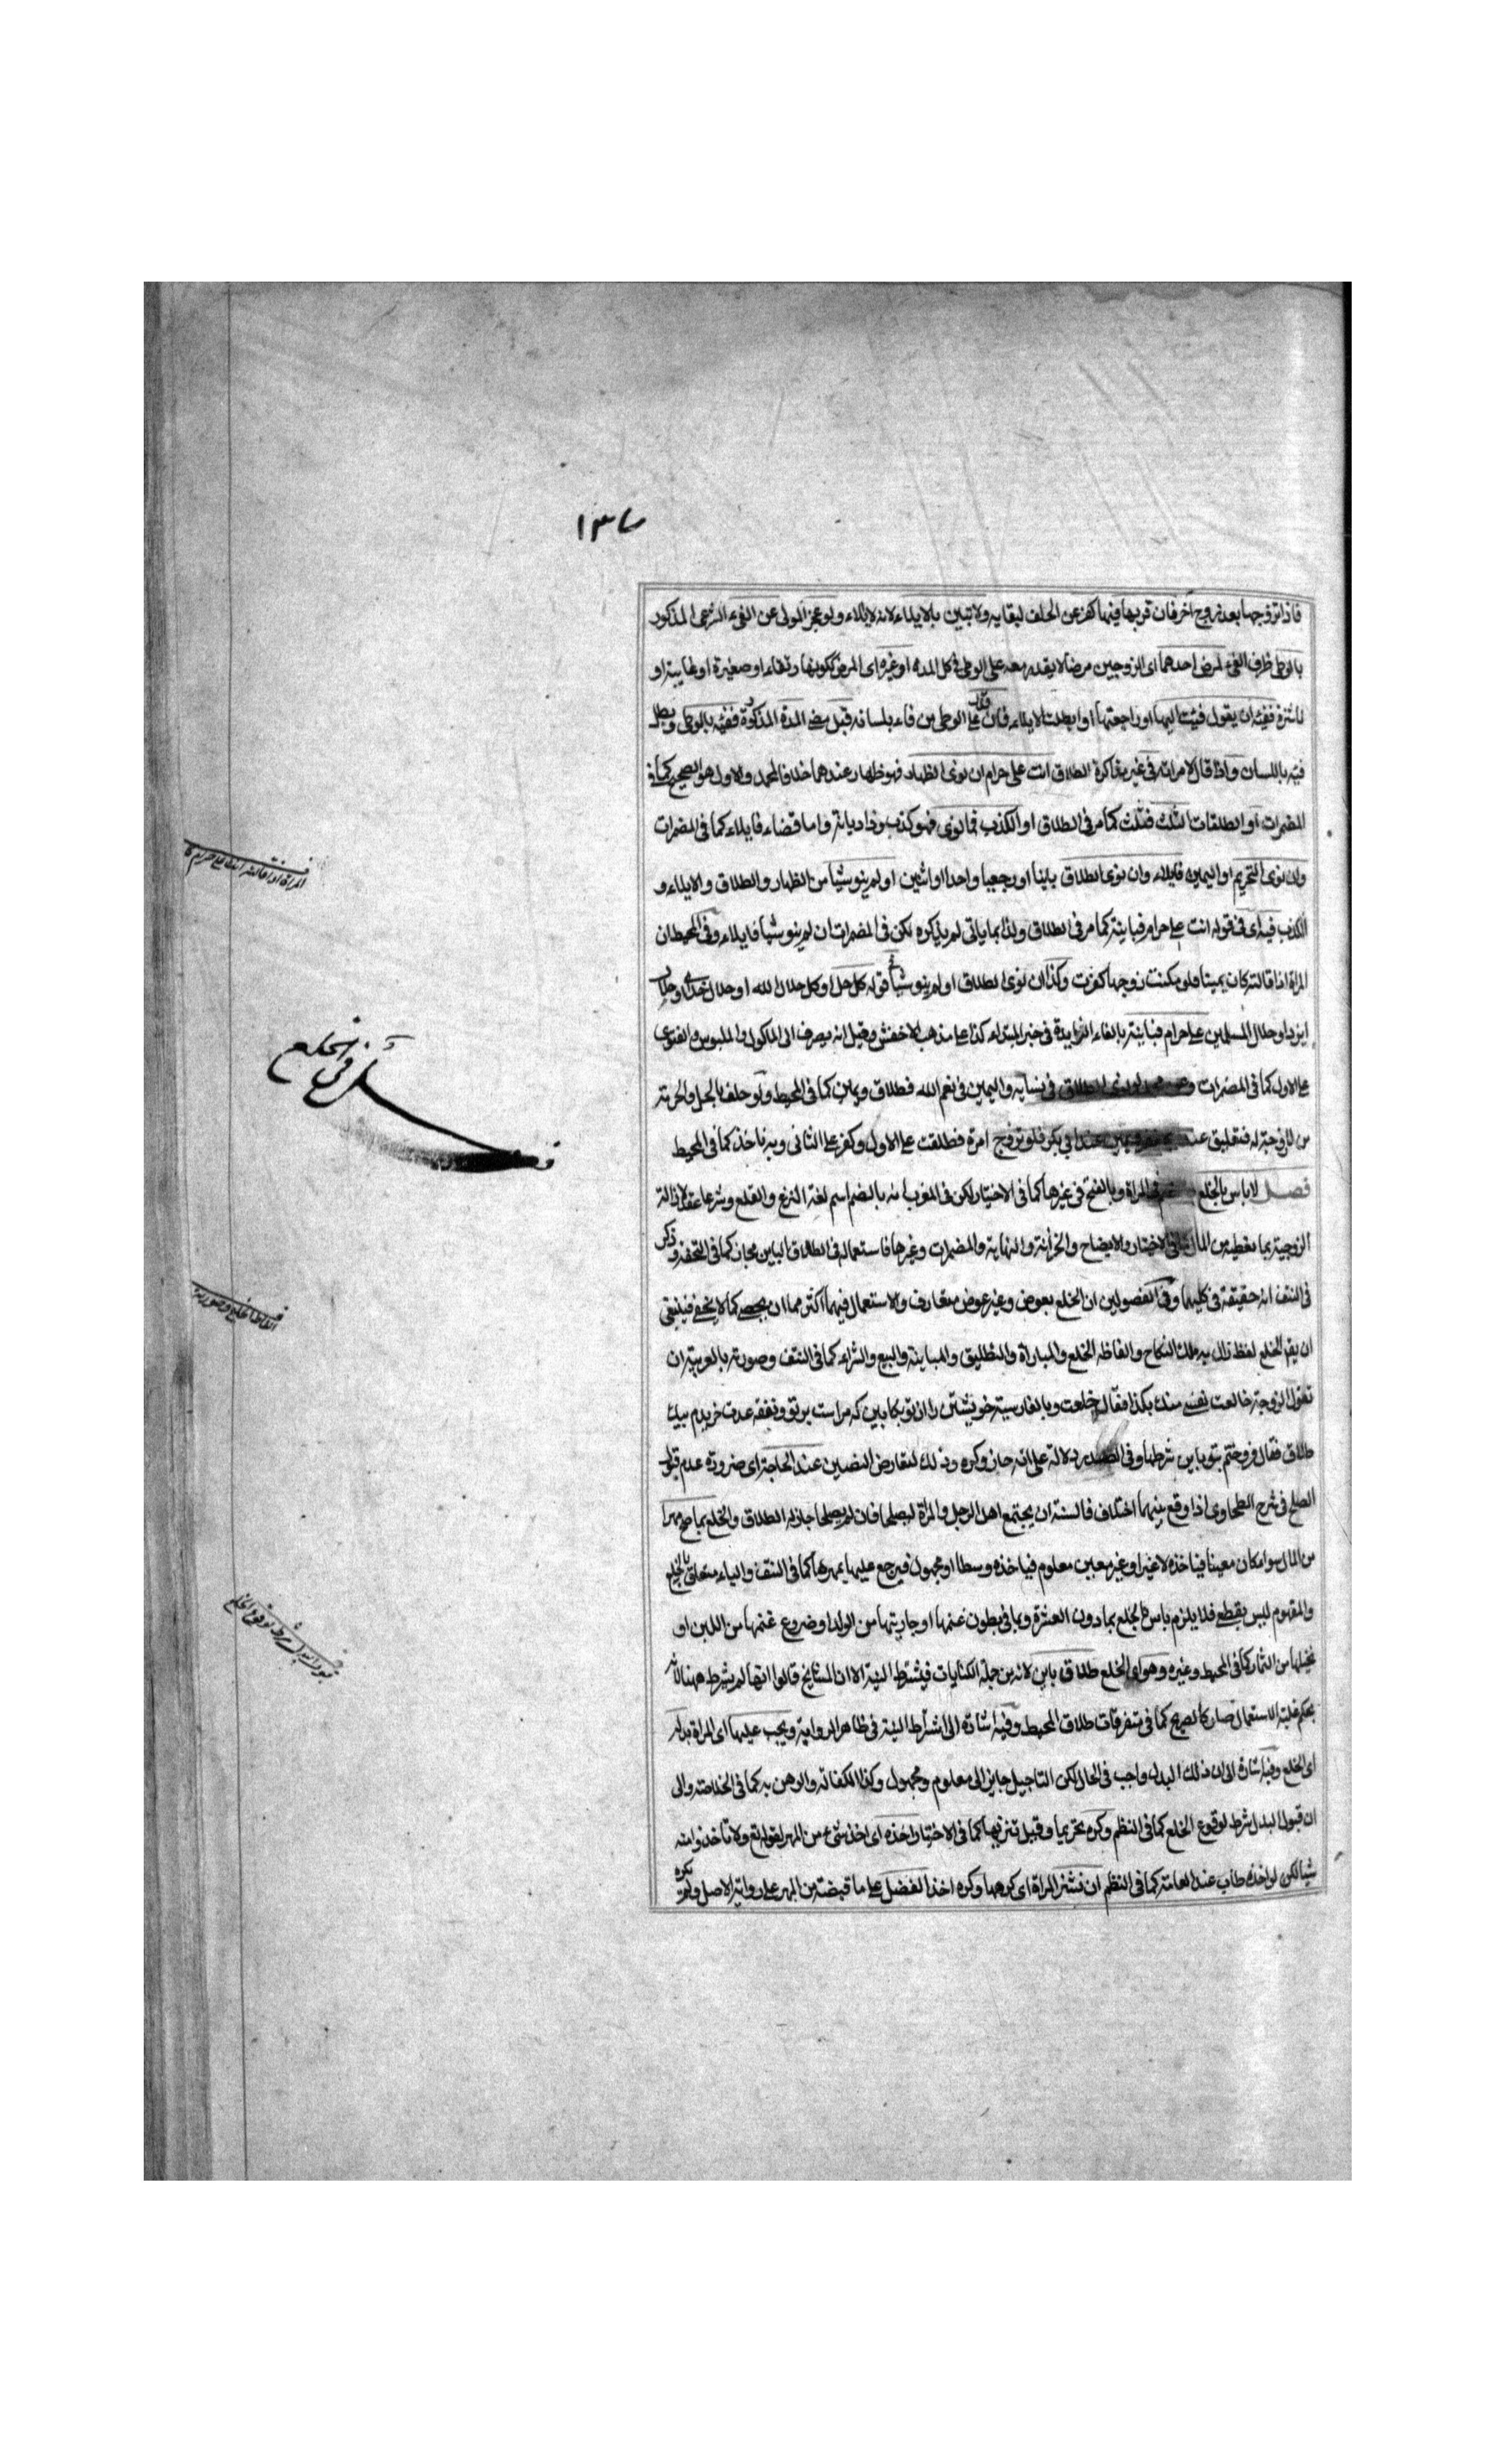 ١٣٧
فاذا تزوجها بعد زوج آخر فان قربها فيهما كفر عن الحلف لبقايه ولا تبين بالايلاء لانه لا ايلاء ولو عجز المولى عن الفئ الشرعى المذكور
بالوطى ظرف الفئ لمرض احدهما اى الزوجين مرضا لا يقدر معه على الوطى فى كل المدة او غيره اى المرض ككونها رتقاء او صغيرة او غايبة او
ناشزة ففيئه ان يقول فئت اليها او راجعتها او ابطلت الايلاء فان قدر على الوطى من فاء بلسانه قبل مضى المدة المذكورة ففيئه بالوطى وبطل
فيئه باللسان واذا قال لامراته فى غير مذاكرة الطلاق انت على حرام ان نوى الظهار فهو ظهار عندهما خلافا لمحمد والاول هو الصحيح كما فى
المضمرات او الطلقات الثلث فثلث كما مر فى الطلاق او الكذب فما نوى فهو كذب وذا ديانة واما قضاء فايلاء كما فى المضمرات
وان نوى التحريم او اليمين فايلاء وان نوى الطلاق باينا او رجعيا واحدا او اثنين او لم ينو شيا من الظهار والطلاق والايلاء و
الكذب فيه اى فى قوله انت على حرام فباينة كما مر فى الطلاق ولذا بما ياتى لم يذكره لكن فى المضمرات ان لم ينو شيا فايلاء وفى المحيط ان
المراة اذا قالته كان يمينا فلو مكنت زوجها كفرت وكذا ان نوى الطلاق او لم ينو شيا فى قوله كل حل او كل حلال الله او حلال خداى وحلال
ايزد او حلال المسلمين على حرام فباينة بالفاء الزايدة فى خبر المبتداء كذا على مذهب الاخفش وقيل انه يصرف الى الماكول والملبوس والفتوى
على الاول كما فى المضمرات الطلاق فى نسايه واليمين فى نعم الله فطلاق ويمين كما فى المحيط ولو حلف بالحل والحرمة
من لا زوجة له فتعليق عند ابي بكر فلو تزوج امرة فطلقت على الاول وكفر على الثانى وبه ناخذ كما فى المحيط
فصل لا باس بالخلع فى المراة وبالفتح فى غيرها كما فى الاختيار لكن فى المغرب انه بالضم اسم لغة النزع والقلع وشرعا عقد لازالة
الزوجية بما تعطيه من المال كما فى الاختيار والايضاح والخزانة والنهاية والمضمرات وغيرها فاستعماله فى الطلاق الباين مجاز كما فى التحفة وذكر
فى النتف انه حقيقة فى كليهما وفى الفصولين ان الخلع بعوض وغير عوض متعارف والاستعمال فيهما اكثر مما ان يحصى كما لا يخفى فينبغى
ان يقر الخلع لفظ زال به ملك النكاح والفاظه الخلع والمباراة والتطليق والمباينة والبيع والشراء كما فى النتف وصورته بالعربية ان
تقول الزوجة خالعت نفسى منك بكذا فقال خلعت وبالفارسية خويشتن را از تو بكابين كه مراست بر تو ونفقه عدت خريدم بيك
طلاق فقال فروختم بتو باين شرطها وفى دلالة على انه جاز وكره وذلك لتعارض النصين عند الحاجة اى ضرورة عدم قبول
الصلح فى شرح الطحاوى اذا وقع بينهما اختلاف فالسنة ان يجتمع اهل الرجل والمراة ليصلحا فان لم يصلحا جاز له الطلاق والخلع بما صح مهرا
من المال سواء كان معينا فياخذه لا غير او غير معين معلوم فياخذه وسطا او مجهول فيرجع عليها بمهرها كما فى النتف والباء متعلق بالخلع
والمفهوم ليس بقطع فلا يلزم باس بالخلع بما دون العشرة وبما فى بطون غنمها او جاريتها من الولد او ضروع غنمها من اللبن او
نخيلها من الثمار كما فى المحيط وغيره وهو اى الخلع طلاق باين لانه من جملة الكنايات فيشترط النية الا ان المشايخ قالوا انها لم يشرط ههنا لانه
بحكم غلبة الاستعمال صار كالصريح كما فى متفرقات طلاق المحيط وفيه اشارة الى اشتراط النية فى ظاهر الرواية ويجب عليها اى المراة بدله
اى الخلع وفيه اشارة الى ان ذلك البدل واجب فى الحال لكن التاجيل جايز الى معلوم ومجهول وكذا الكفالة والرهن به كما فى الخلاصة والى
ان قبول البدل شرط لوقوع الخلع كما فى النظم وكره تحريما وقيل تنزيها كما فى الاختيار اخذه اى اخذ شئ من المهر لقوله تع ولا تاخذوا منه
شيا لكن لو اخذه طاب عند العامة كما فى النظم ان نشز المراة اى كرهها وكره اخذ الفضل على ما قبضته من المهر على رواية الاصل ولم يكره
مسائل فى الخلع
المراة اذا قالت انت على حرام
الفاظ الخلع وصورته
قبول البدل شرط لوقوع الخلع